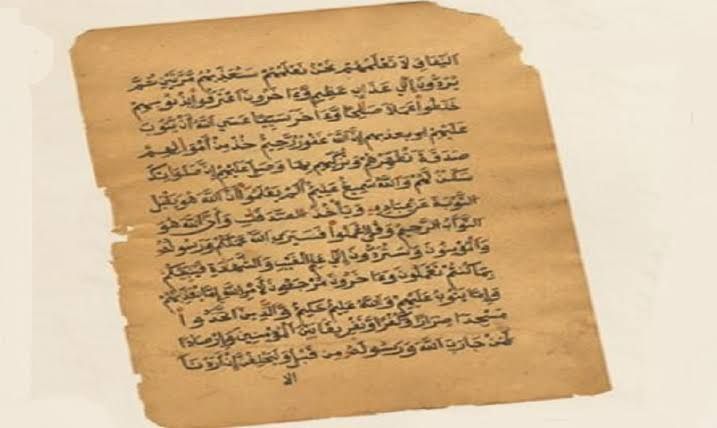 النفاق لا تعلمهم نحن نعلمهم سنعذبهم مرتين ثم
يردون إلى عذاب عظيم وءاخرون اعترفوا بذنوبهم
خلطوا عملا صلحا وءاخر سيئا عسى الله أن يتوب
عليهم إن الله غفور رحيم خذ من أموالهم
صدقة تطهرهم وتزكيهم بها وصل عليهم إن صلوتك
سكن لهم والله سميع عليم ألم يعلموا أن الله هو يقبل
التوبة عن عباده ويأخذ الصدقت وأن الله هو
التواب الرحيم وقل اعملوا فسيرى الله عملكم ورسوله
والمؤمنون وستردون إلى علم الغيب والشهدة فينبئكم
بما كنتم تعملون وءاخرون مرجون لأمر الله إما يعذبهم
وإما يتوب عليهم والله عليم حكيم والذين اتخذوا
مسجدا ضرارا وكفرا وتفريقا بين المؤمنين وإرصادا
لمن حارب الله ورسوله من قبل وليحلفن إن أردنا
الا